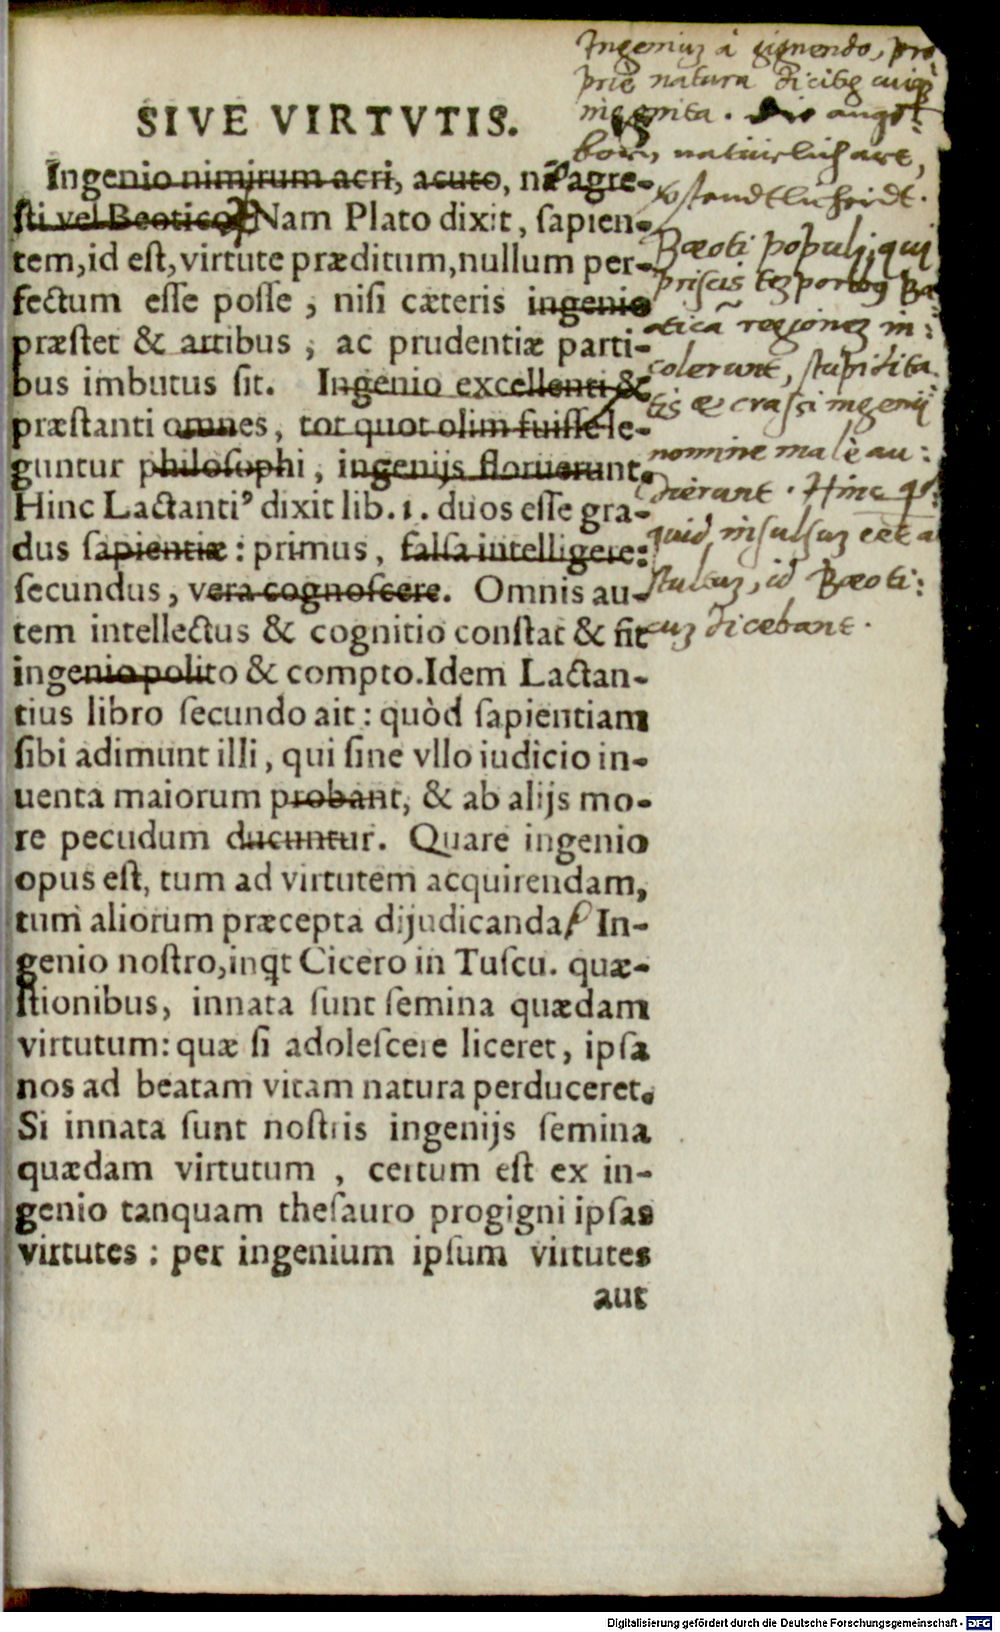 SIVE VIRTVTIS.
Ingenio nimirum acri, acuto, nõ agre-
sti vel Beotico. Nam Plato dixit, sapien-
tem, id est, virtute præditum, nullum per-
fectum esse posse, nisi cæteris ingenio
præstet & artibus, ac prudentiæ parti-
bus imbutus sit. Ingenio excellenti &
præstanti omnes, tot quot olim fuisse le-
guntur philosophi, ingenijs floruerunt.
Hinc Lactanti⁹ dixit lib. 1. duos esse gra-
dus sapientiæ: primus, falsa intelligere:
secundus, vera cognoscere. Omnis au-
tem intellectus & cognitio constat & fit
ingenio polito & compto. Idem Lactan-
tius libro secundo ait: quòd sapientiam
sibi adimunt illi, qui sine vllo iudicio in-
uenta maiorum probant, & ab alijs mo-
re pecudum ducuntur. Quare ingenio
opus est, tum ad virtutem acquirendam,
tum aliorum præcepta dijudicanda. In-
genio nostro, inqt Cicero in Tuscu. quæ-
stionibus, innata sunt semina quædam
virtutum: quæ si adolescere liceret, ipsa
nos ad beatam vitam natura perduceret.
Si innata sunt nostris ingenijs semina
quædam virtutum, certum est ex in-
genio tanquam thesauro progigni ipsas
virtutes: per ingenium ipsum virtutes
aut
Ingeniuz à gignendo, pro
priè natura dicitꝫ cuiqꝫ
ingenita. Die angeꝛ:
born, naturlich art,
Bœoti populi, qui
priscis tēporibꝫ Bœ
oticā regionez in:
colerunt, stupidita
tis & crassi ingenij
nomine malè au:
dierunt. Hinc
quid insulsuz
stultuz, id Bœoti:
cuz dicebant.
Digitalisierung gefördert durch die Deutsche Forschungsgemeinschaft - DFG